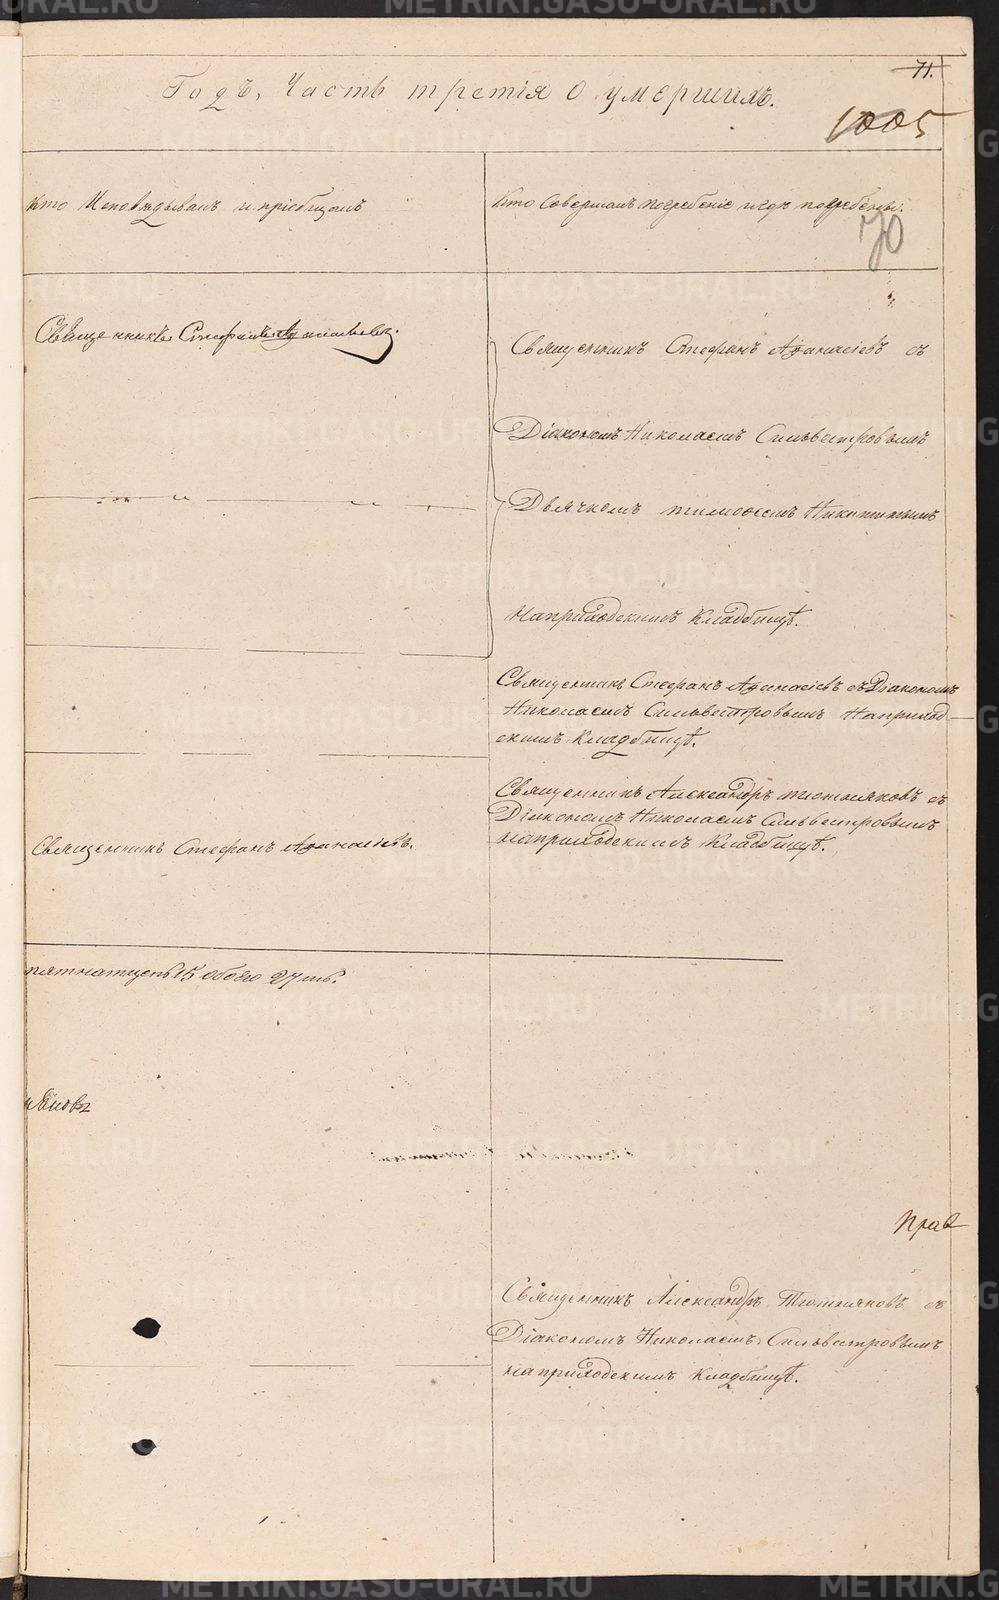 71.
Годъ, Часть третія О умершихъ.
1005
Кто Исповѣдывалъ и пріобщалъ
Кто Совершалъ погребеніе и гдѣ погребены.
70
Священникъ Стефанъ Аѳанасьевъ.
Священникъ Стефанъ Аѳанасіевъ съ
Діакономъ Николаемъ Сильвестровымъ
Дьячкомъ тимоѳеемъ Никитинымъ
На приходскимъ Кладбищѣ.
Священникъ Стефанъ Аѳанасіевъ съ Діакономъ
Николаемъ Сильвестровымъ На приход
скимъ Кладбищѣ.
Священникъ Александръ тютняковъ съ
Діакономъ Николаемъ Сильвестровымъ
на приходскимъ Кладбищѣ.
Священникъ Стефанъ Аѳанасіевъ.
пятнатцеть 15 обоего 27мь.
Прав
Священникъ Александръ Тютняковъ съ
Діакономъ Николаемъ Сильвестровымъ
на приходскимъ Кладбищѣ.
METRIKI.GASO-URAL.RU